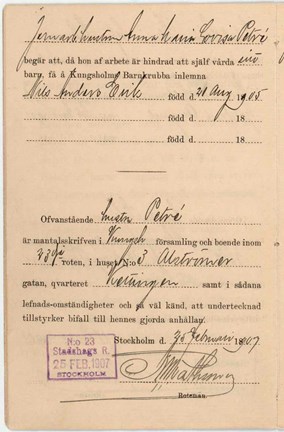 Jernarb. hustrun Anna Maria Lovisa Petré
begär att, då hon af arbete är hindrad att själf vårda sitt
barn, få å Kungsholms Barnkrubba inlemna
Nils Anders Erik född d. 21 Aug 1905
född d. 18
född d. 18
Ofvanstående hustru Petré
är mantalsskrifven i Kungsh församling och boende inom
23de roten, i huset N:o 3 Alströmer
gatan, qvarteret samt i sådana
lefnads-omständigheter och så väl känd, att undertecknad
tillstyrker bifall till hennes gjorda anhållan.
Stockholm d. 25 Februari 1907
N:o 23
Stadshags R.
25 FEB. 1907
STOCKHOLM
Roteman.